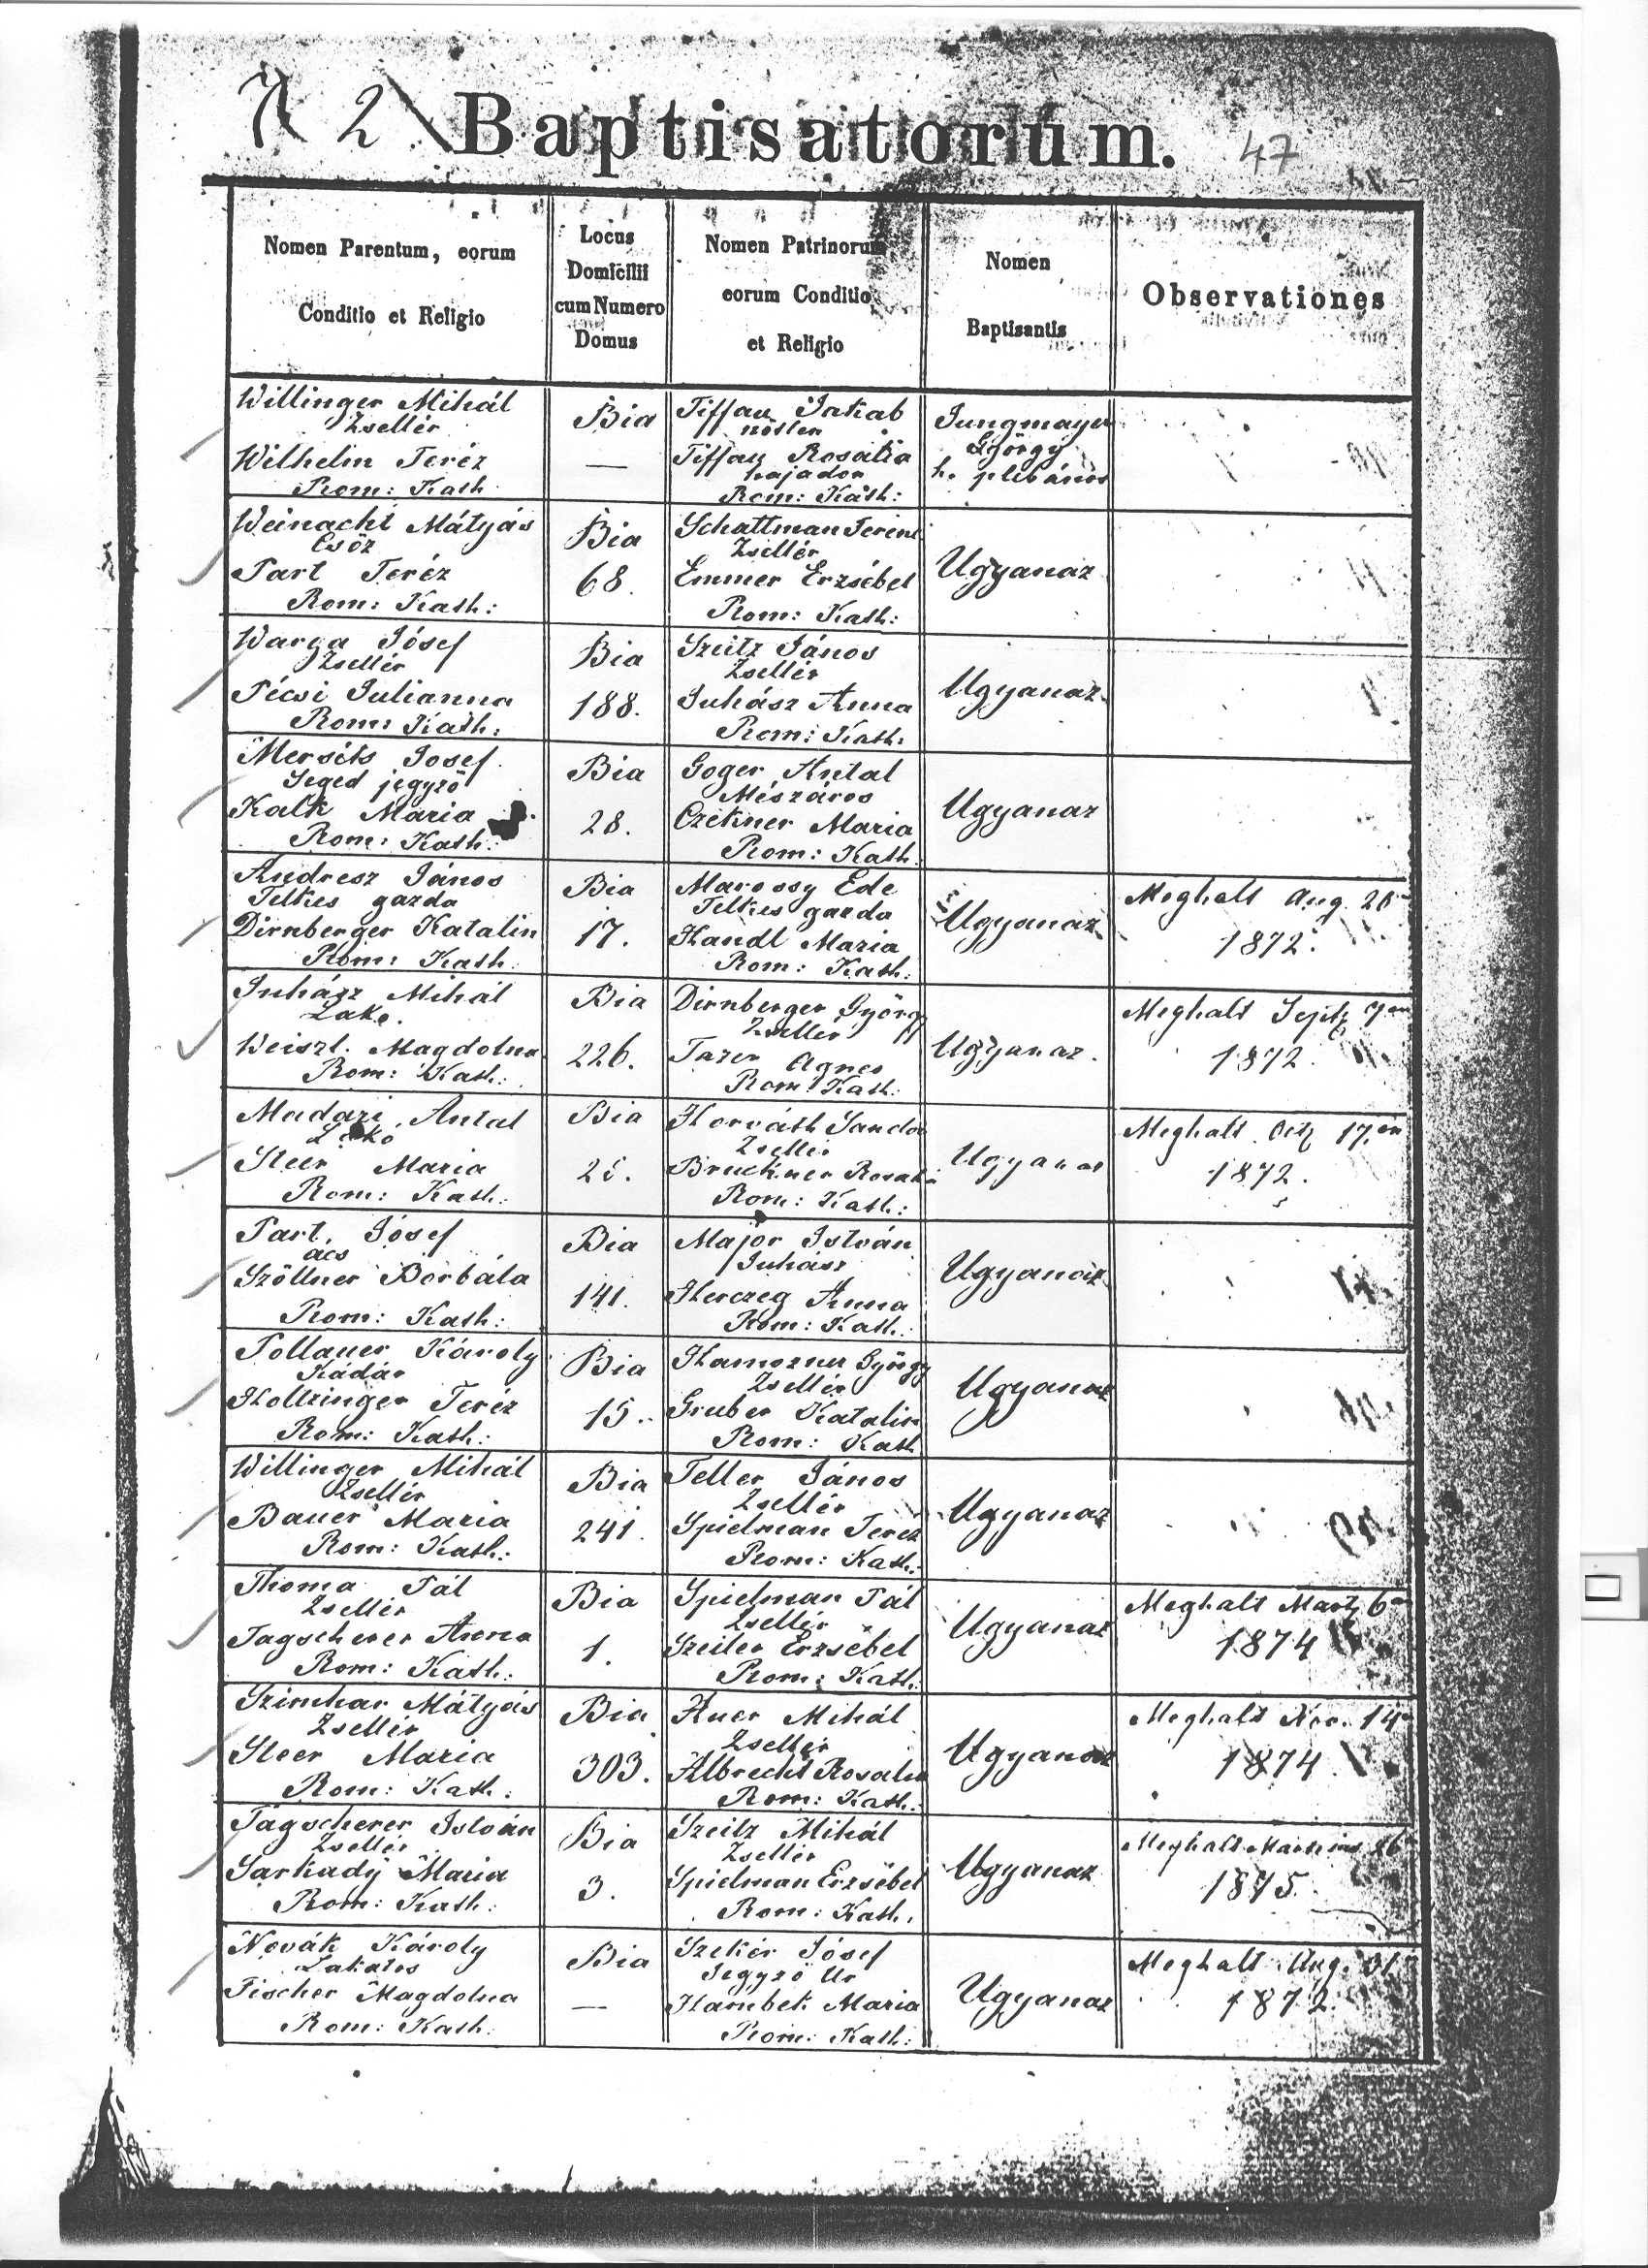 72 Baptisatorum. 47
Nomen Parentum, eorum
Conditio et Religio
Locus
Domicilii
cum Numero
Domus
Nomen Patrinorum
eorum Conditio
et Religio
Nomen
Baptisantis
Observationes
Willinger Mihál
Zsellér
Wilhelm Teréz
Rom: Kath
Bia
—
Tiffau Jakab
nőtlen
Tiffau Rosalia
hajadon
Rom: Kath:
Jungmayer
György
h. plébános
Weinacht Mátyás
Csőz
Part Teréz
Rom: Kath:
Bia
68.
Schattman Ferenc
Zsellér
Emmer Erzsébet
Rom: Kath:
Ugyanaz
Warga Jósef
Zsellér
Pécsi Julianna
Rom: Kath:
Bia
188.
Szeitz János
Zsellér
Juhász Anna
Rom: Kath:
Ugyanaz
Mersits Josef
Segéd jegyző
Kalk Maria
Rom: Kath:
Bia
28.
Goger Antal
Mészáros
Czekner Maria
Rom: Kath
Ugyanaz
Andresz János
Telkes gazda
Dirnberger Katalin
Rom: Kath.
Bia
17.
Marossy Ede
Telkes gazda
Handl Maria
Rom: Kath:
Ugyanaz
Meghalt Aug. 28
1872.
Juhász Mihál
Lakó.
Weiszt. Magdolna
Rom: Kath:
Bia
226.
Dirnberger György
Zsellér
Tazer Agnes
Rom: Kath:
Ugyanaz.
Meghalt Septz 7én
1872.
Madarzi Antal
Lakó
Steer Maria
Rom: Kath:
Bia
25.
Horváth Sandor
Zsellér
Bruckner Rosalia
Rom: Kath:
Ugyanaz
Meghalt Octz 17én
1872.
Part. Jósef
ács
Szöllner Borbála
Rom: Kath:
Bia
141.
Major István
Juhász
Herczeg Anna
Rom: Kath:
Ugyanaz
Pollauer Károly
Kádár
Holtzinger Teréz
Rom: Kath:
Bia
15.
Hamozner György
Zsellér
Gruber Katalin
Rom: Kath
Ugyanaz
Willinger Mihál
Zsellér
Bauer Maria
Rom: Kath:
Bia
241.
Teller János
Zsellér
Spielman Teréz
Rom: Kath:
Ugyanaz
Thoma Pál
Zsellér
Tagscherer Anna
Rom: Kath:
Bia
1.
Spielman Pál
Zsellér
Szeiler Erzsébet
Rom: Kath:
Ugyanaz
Meghalt Martz 6án
1874
Szimhar Mátyás
Zsellér
Steer Maria
Rom: Kath:
Bia
303.
Auer Mihál
Zsellér
Albrecht Rosalia
Rom: Kath:
Ugyanaz
Meghalt Nov. 14
1874
Tagscherer István
Zsellér
Sarkady Maria
Rom: Kath:
Bia
3.
Szeitz Mihál
Zsellér
Spielman Erzsébet
Rom: Kath.
Ugyanaz
Meghalt Martius 26
1875.
Novák Károly
Lakatos
Fischer Magdolna
Rom: Kath:
Bia
—
Szekér Jósef
Jegyző Úr
Hambek Maria
Rom: Kath:
Ugyanaz
Meghalt Aug. 31
1872.